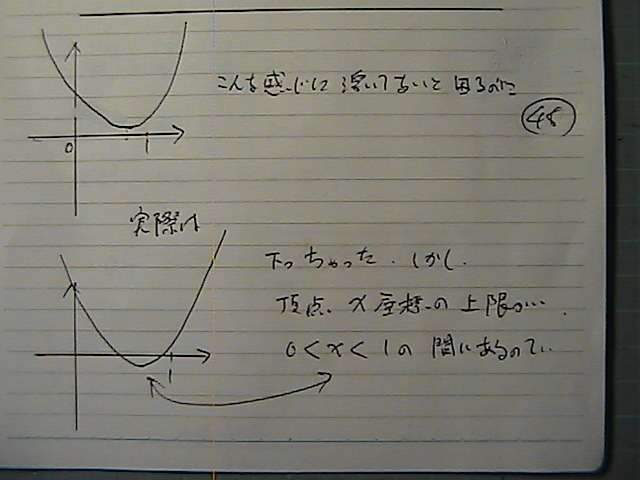 こんな感じに浮いてないと困るのに
48
0
1
実際は
下っちゃった.しかし.
頂点.x座標の上限が…
0<x<1の間にあるので…
1